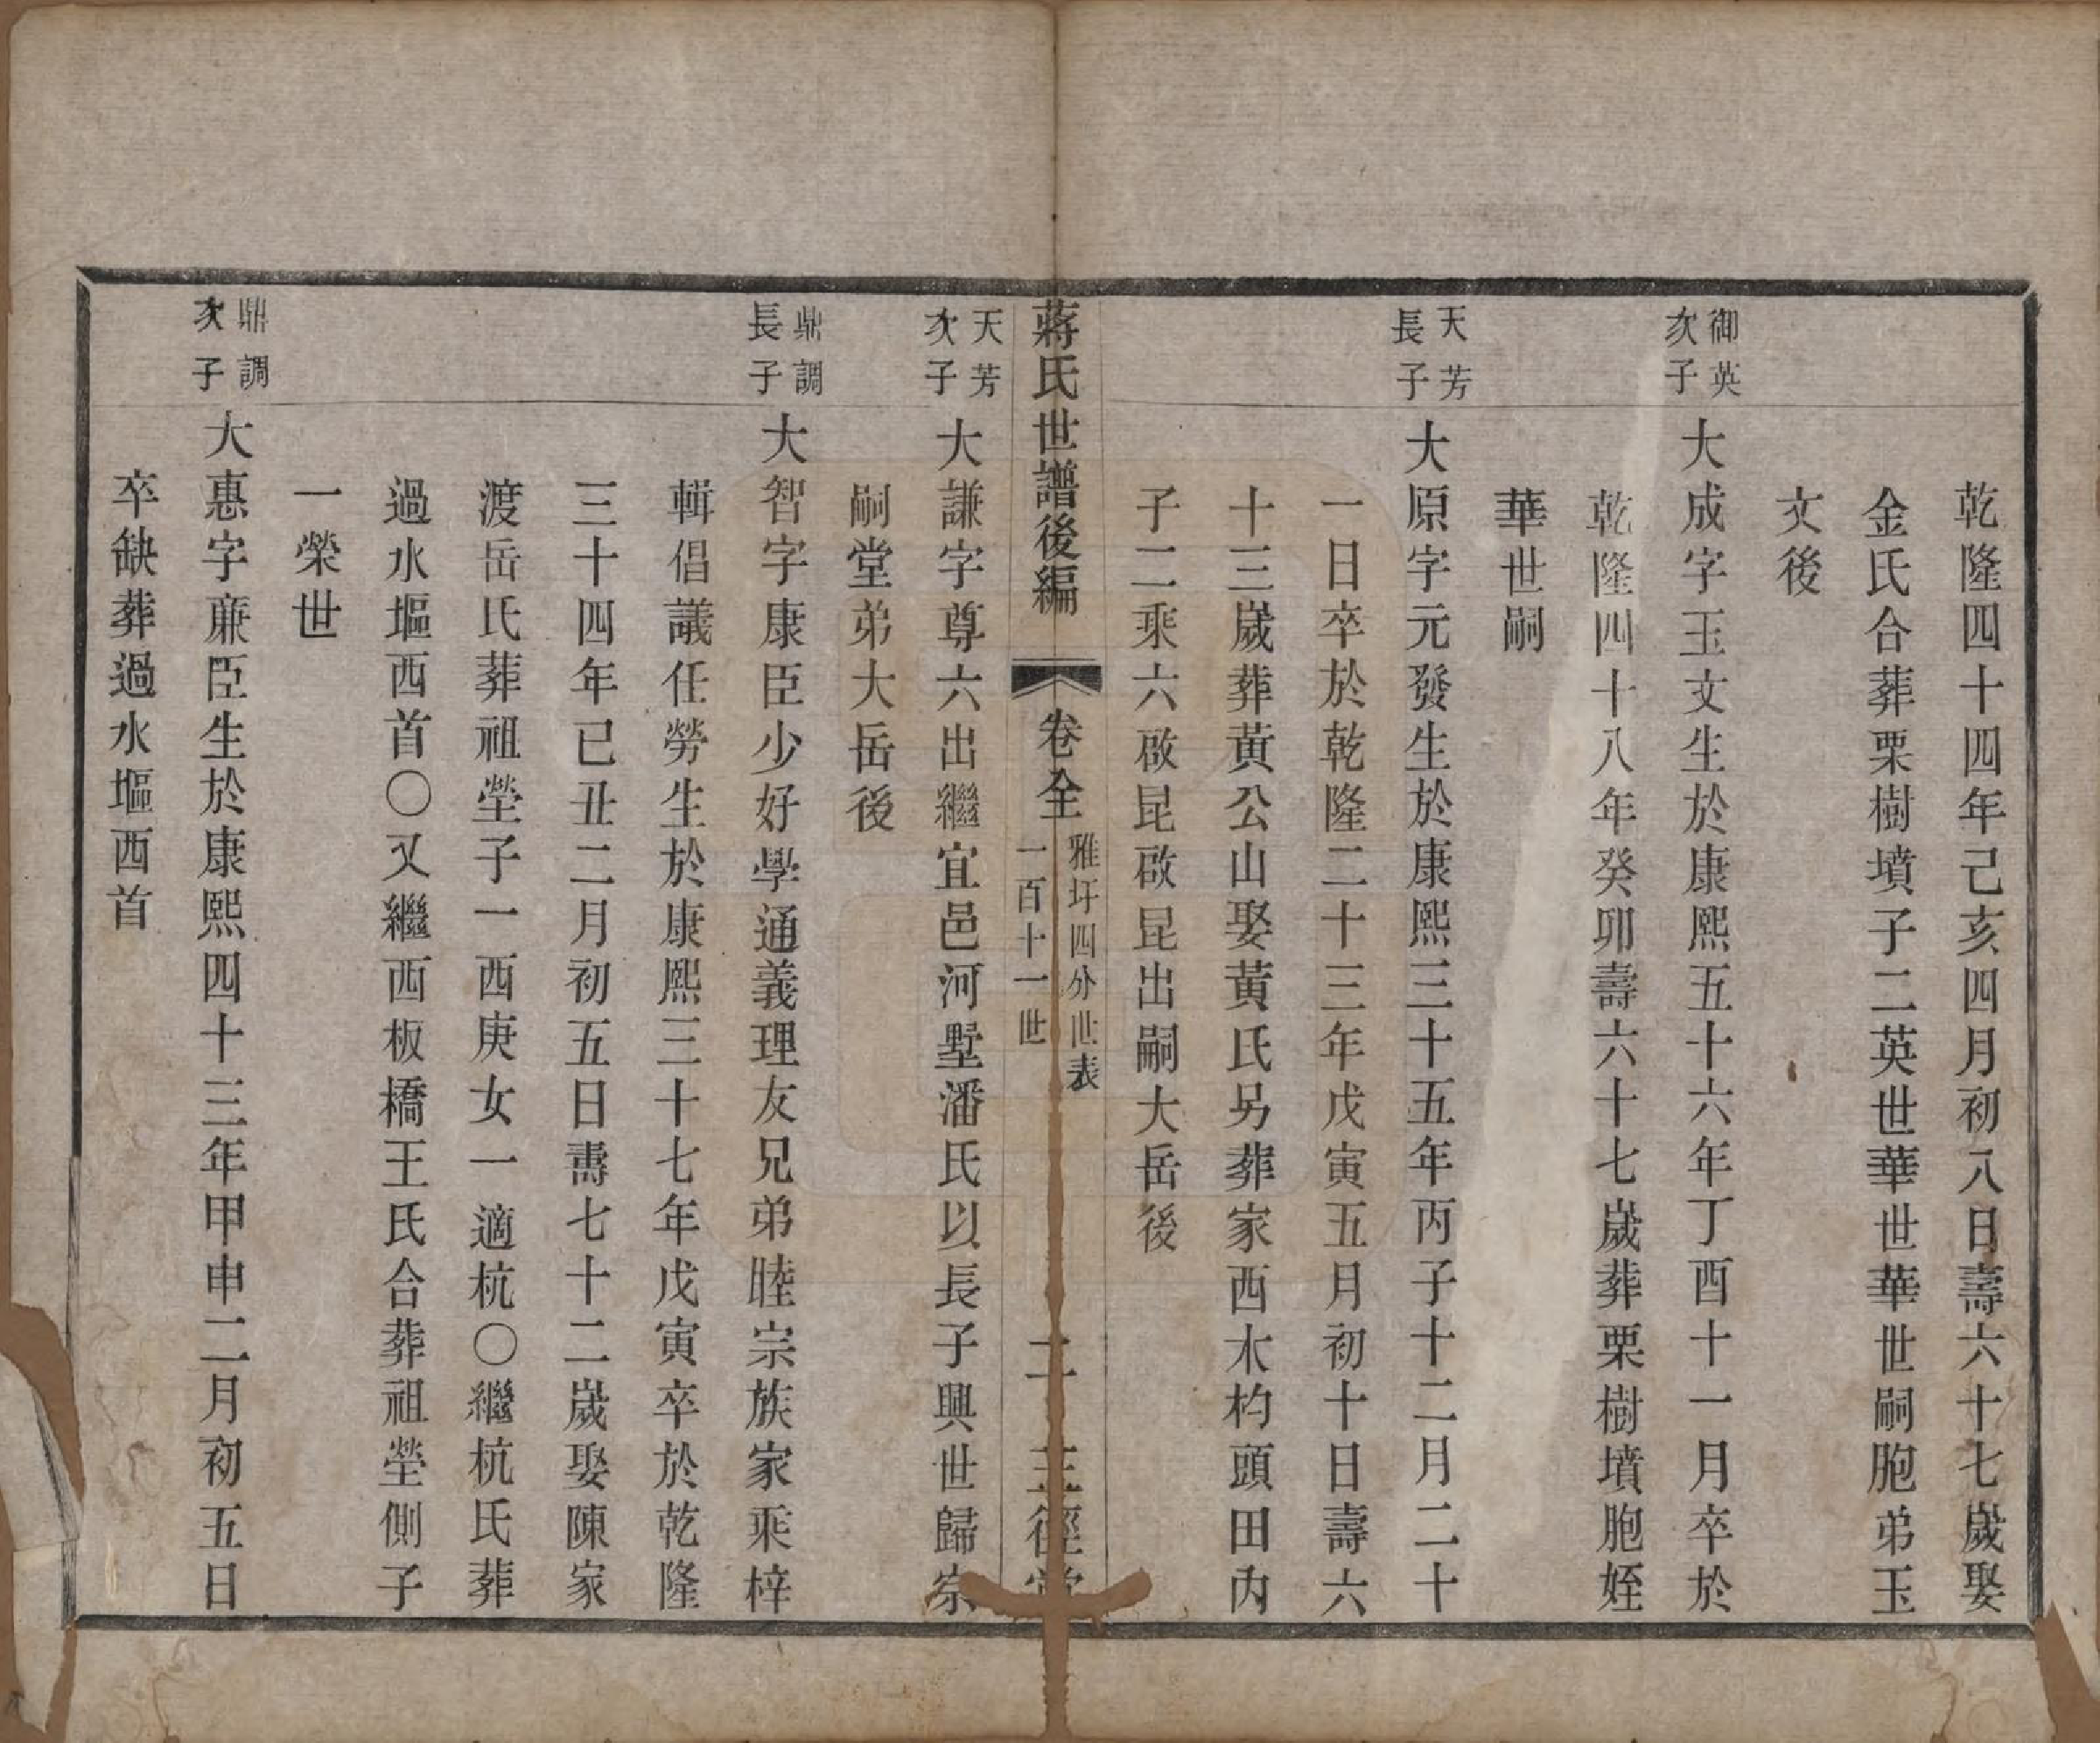 乾隆四十四年己亥四月初八日壽六十七歲娶
金氏合葬栗樹墳子二英世華世華世嗣胞弟玉
文後
御英
次子
大成字玉文生於康熙五十六年丁酉十一月卒於
乾隆四十八年癸卯壽六十七歲葬栗樹墳胞姪
華世嗣
天芳
長子
大原字元發生於康熙三十五年丙子十二月二十
一日卒於乾隆二十三年戊寅五月初十日壽六
十三歲葬黃公山娶黃氏另葬家西木杓頭田內
子二乘六啟昆啟昆出嗣大岳後
蔣氏世譜後編 卷全
雅圩四分世表
一百十一世
二 三徑堂
天芳
次子
大謙字尊六出繼宜邑河墅潘氏以長子興世歸宗
嗣堂弟大岳後
鼎調
長子
大智字康臣少好學通義理友兄弟睦宗族家乘梓
輯倡議任勞生於康熙三十七年戊寅卒於乾隆
三十四年已丑二月初五日壽七十二歲娶陳家
渡岳氏葬祖塋子一西庚女一適杭〇繼杭氏葬
過水堰西首〇又繼西板橋王氏合葬祖塋側子
一榮世
鼎調
次子
大惠字廉臣生於康熙四十三年甲申二月初五日
卒缺葬過水堰西首